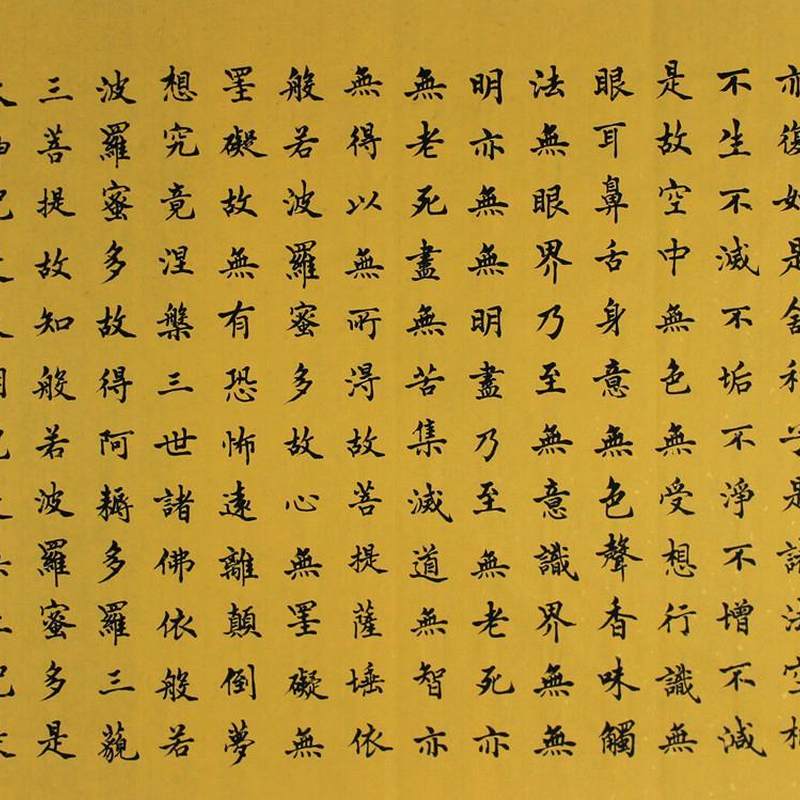 亦復如是舍利子是諸法空相
不生不滅不垢不淨不增不減
是故空中無色無受想行識無
眼耳鼻舌身意無色聲香味觸
法無眼界乃至無意識界無無
明亦無無明盡乃至無老死亦
無老死盡無苦集滅道無智亦
無得以無所得故菩提薩埵依
般若波羅蜜多故心無罣礙無
罣礙故無有恐怖遠離顛倒夢
想究竟涅槃三世諸佛依般若
波羅蜜多故得阿耨多羅三藐
三菩提故知般若波羅蜜多是